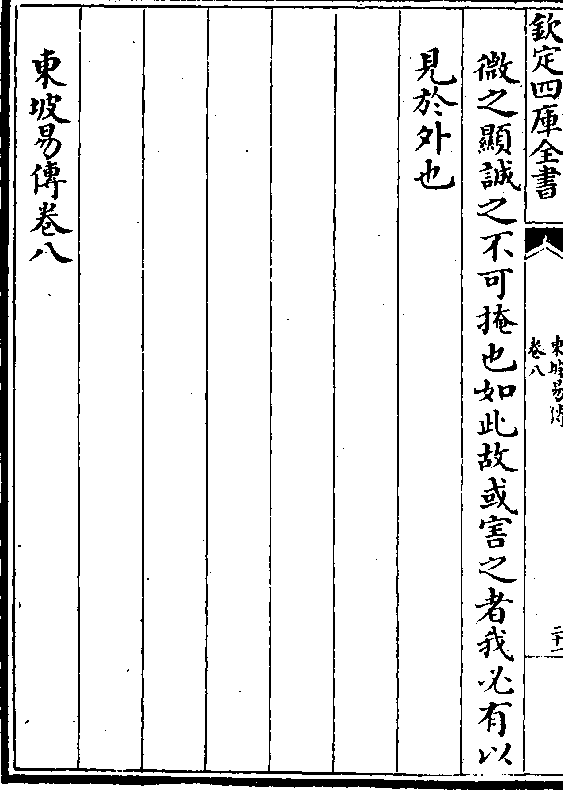 欽定四庫全書
東坡易傳
卷八
二十一
微之顯誠之不可掩也如此故或害之者我必有以
見於外也
東坡易傳卷八